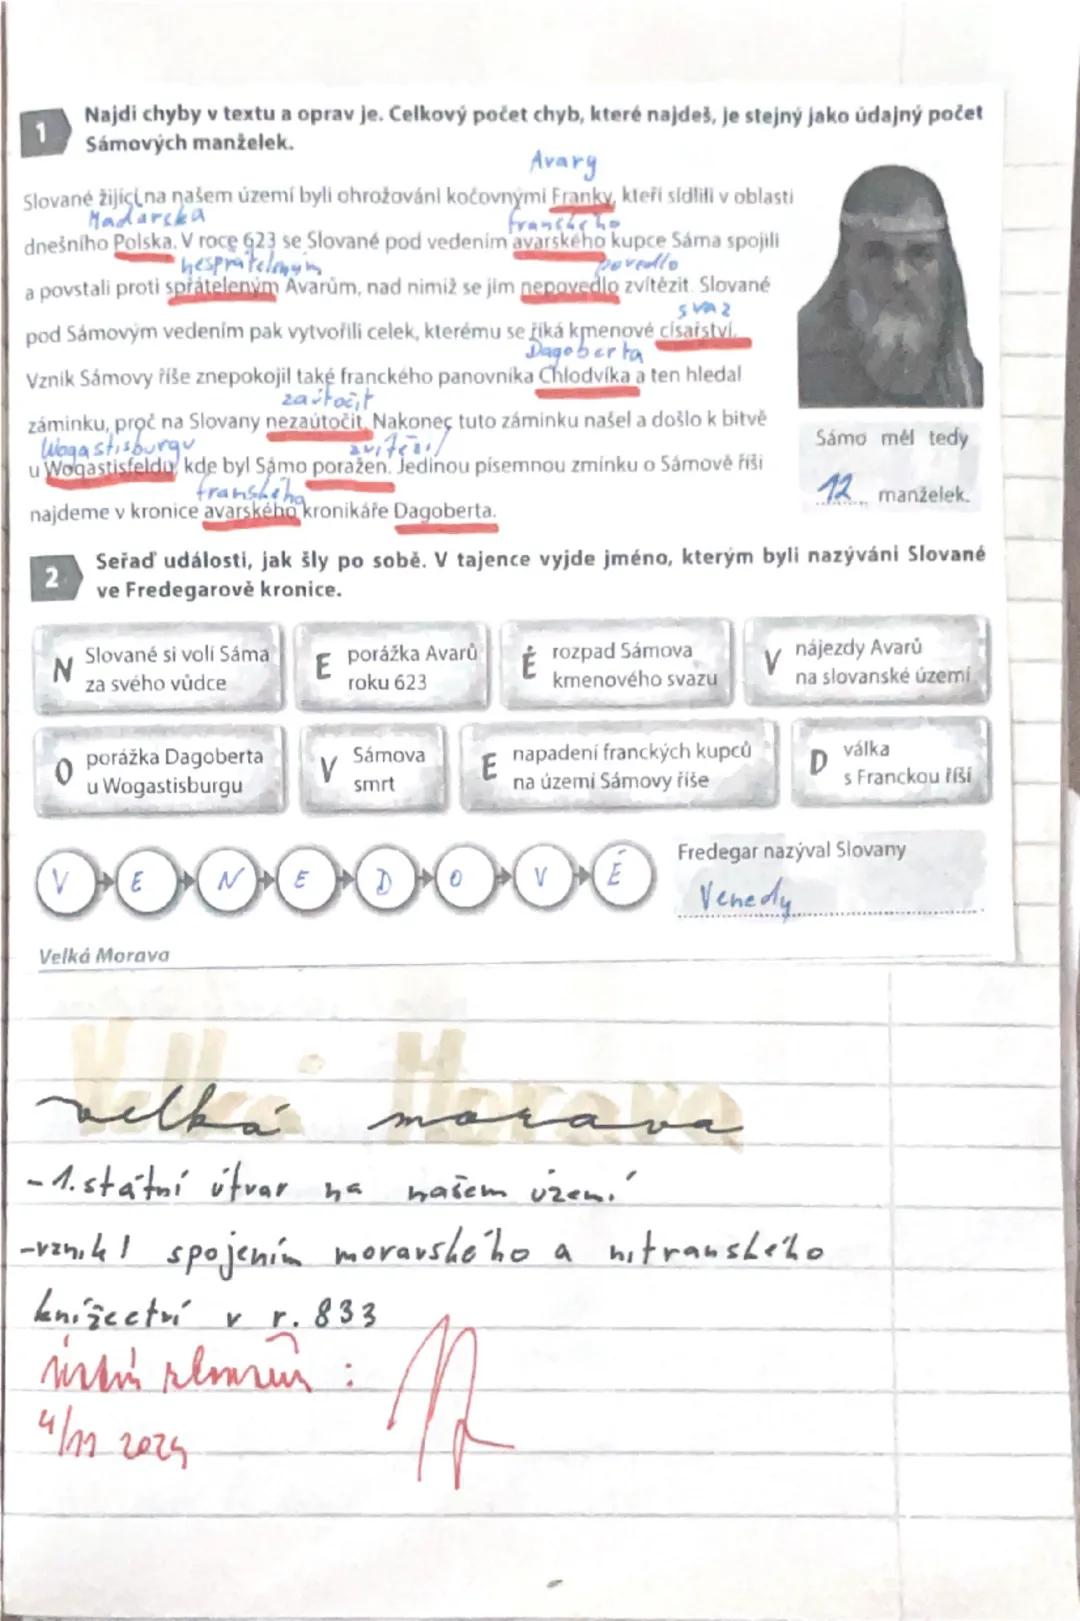 1
Najdi chyby v textu a oprav je. Celkový počet chyb, které najdeš, je stejný jako údajný počet
Sámových manželek.
Avary
Slované žijící na našem území byli ohrožováni kočovnými Franky, kteří sídlili v oblasti
Maďarska franckého
dnešního Polska. V roce 623 se Slované pod vedením avarského kupce Sáma spojili
nespřáteleným povedlo
a povstali proti spřáteleným Avarům, nad nimiž se jim nepovedlo zvítězit. Slované
svaz
pod Sámovým vedením pak vytvořili celek, kterému se říká kmenové císařství.
Dagoberta
Vznik Sámovy říše znepokojil také franckého panovníka Chlodvíka a ten hledal
zaútočit
záminku, proč na Slovany nezaútočit. Nakonec tuto záminku našel a došlo k bitvě
Wogastisburgu zvítězil
u Wogastisfeldu, kde byl Sámo poražen. Jedinou písemnou zmínku o Sámově říši
franského
najdeme v kronice avarského kronikáře Dagoberta.
Sámo měl tedy
12 manželek.
2
Seřaď události, jak šly po sobě. V tajence vyjde jméno, kterým byli nazýváni Slované
ve Fredegarově kronice.
N Slované si volí Sáma
za svého vůdce
E porážka Avarů
roku 623
É rozpad Sámova
kmenového svazu
V nájezdy Avarů
na slovanské území
O porážka Dagoberta
u Wogastisburgu
V Sámova
smrt
E napadení franckých kupců
na území Sámovy říše
D válka
s Franckou říší
V E N E D O V É
Fredegar nazýval Slovany
Venedy
Velká Morava
Velká Morava
velká morava
- 1. státní útvar na našem území
- vznikl spojením moravského a nitranského
knížectví v r. 833
ústní zkoušení :
4/11 2024